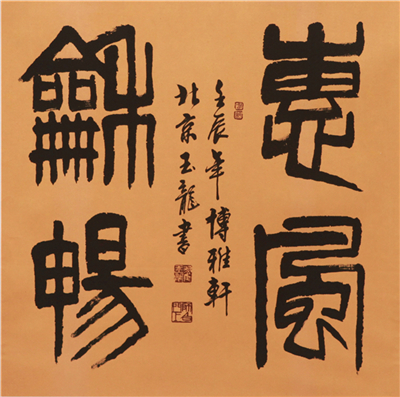 惠風
龢暢
壬辰年博雅軒
北京玉龍書